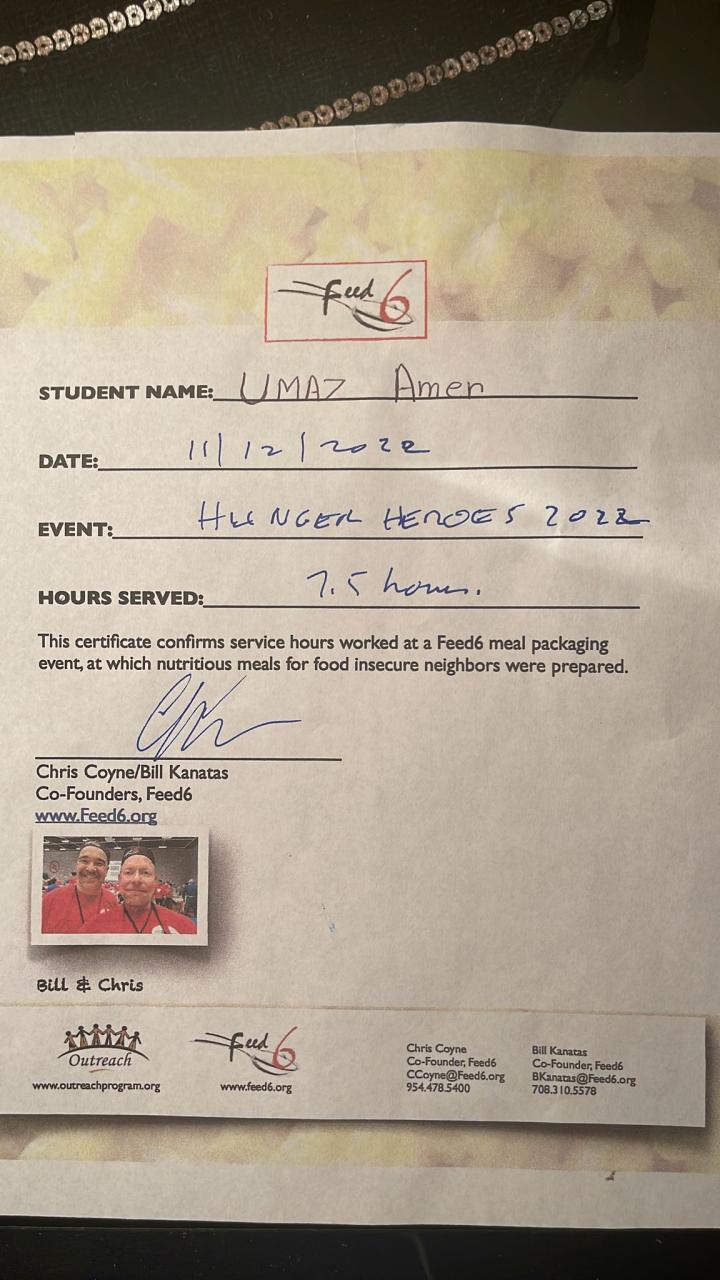 Feed 6
STUDENT NAME: UMAZ Amen
DATE: 11/12/2022
EVENT: HUNGER HEROES 2022
HOURS SERVED: 7.5 hours.
This certificate confirms service hours worked at a Feed6 meal packaging
event, at which nutritious meals for food insecure neighbors were prepared.
Chris Coyne/Bill Kanatas
Co-Founders, Feed6
www.Feed6.org
Bill & Chris
Outreach
www.outreachprogram.org
Feed 6
www.feed6.org
Chris Coyne
Co-Founder, Feed6
CCoyne@Feed6.org
954.478.5400
Bill Kanatas
Co-Founder, Feed6
BKanatas@Feed6.org
708.310.5578